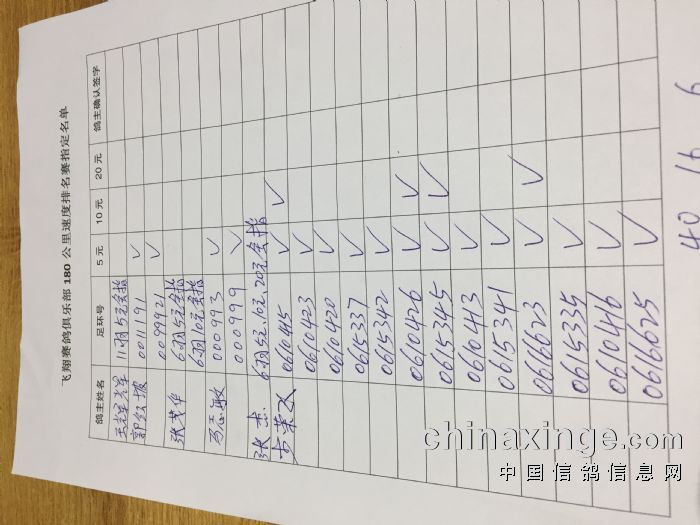 飞翔赛鸽俱乐部 180 公里速度排名赛指定名单
鸽主姓名 足环号 5 元 10 元 20 元 鸽主确认签字
11羽5元全指
郭红坡 0011191 ✓
0009921 ✓
张茂华 6羽5元全指
6羽10元全指
马志敏 000993 ✓
000999 ✓
张杰 6羽5元、10元、20元全指
方荣飞 0610415 ✓ ✓
0610423 ✓
0610420 ✓
0615337 ✓
0615342 ✓
0610426 ✓ ✓
0615345 ✓ ✓
0610413 ✓
0615341 ✓
0616623 ✓ ✓
0615335 ✓
0610416 ✓
0616625 ✓
40 16 6
chinaxinge.com
中国信鸽信息网